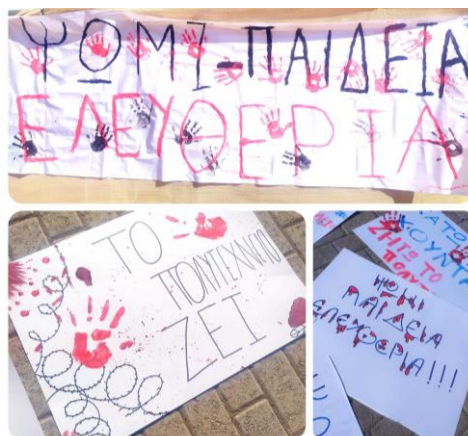 ΨΩΜΙ-ΠΑΙΔΕΙΑ
ΕΛΕΥΘΕΡΙΑ
ΤΟ
ΠΟΛΥΤΕΧΝΕΙΟ
ΖΕΙ
ΚΑΤΩ
ΧΟΥΝΤΑ
ΖΗΤΩ ΤΟ
ΠΟΛΥΤ
ΨΩΜΙ
ΠΑΙΔΕΙΑ
ΕΛΕΥΘΕΡΙΑ!!!